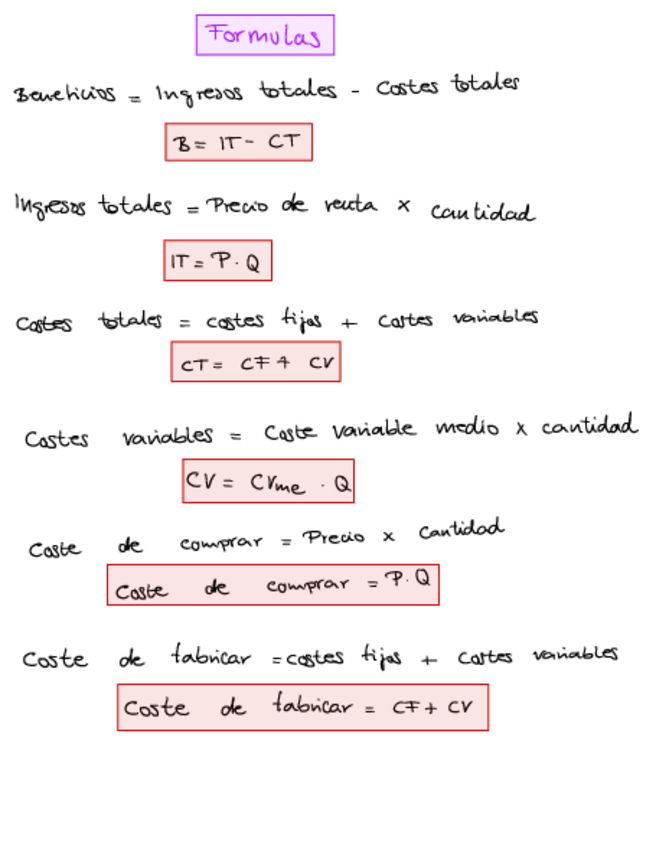 Formulas
Beneficios = Ingresos totales - Costes totales
B = IT - CT
Ingresos totales = Precio de venta x cantidad
IT = P · Q
Costes totales = costes fijos + costes variables
CT = CF + CV
Costes variables = Coste variable medio x cantidad
CV = CVme · Q
Coste de comprar = Precio x Cantidad
Coste de comprar = P · Q
Coste de fabricar = costes fijos + costes variables
Coste de fabricar = CF + CV